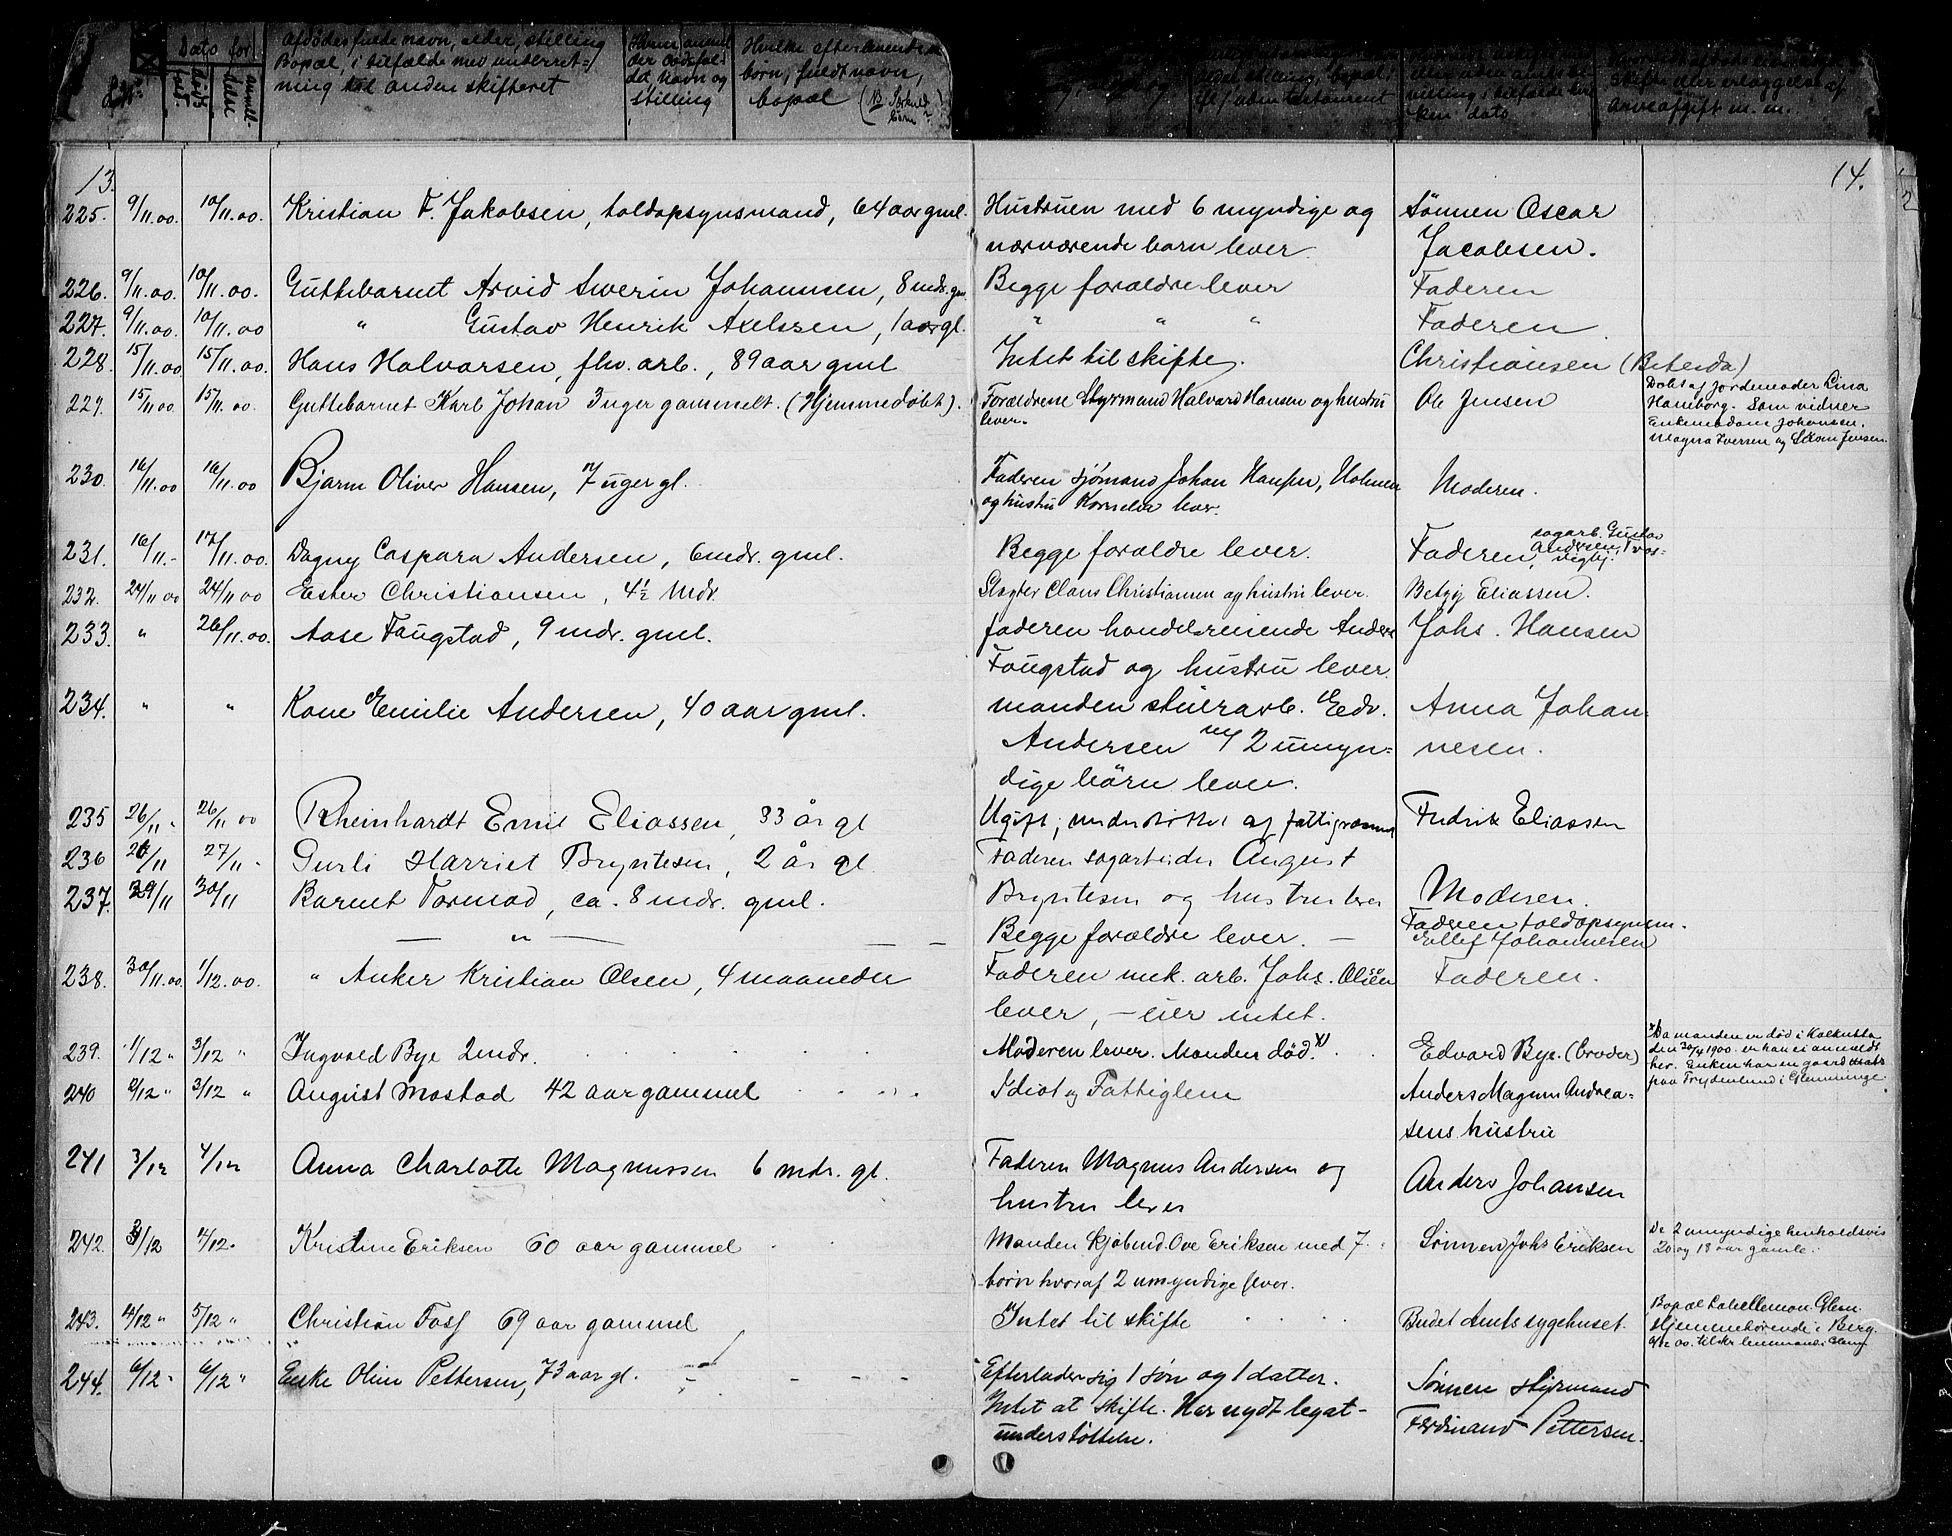 Dato for
døds
anmel-
delse
Afdødes fulde navn, alder, stilling
Bopæl, i tilfælde med underret-
ning til anden skifteret
der dødsfal-
det. Navn og
stilling
Hvilke efterlevende
børn, fuldt navn,
bopæl
ken dato
arveafgift m. m.
13.
14.
225. 9/11.00. 10/11.00. Kristian F. Jakobsen, toldopsynsmand, 64 aar gml. Hustruen med 6 myndige og Sønnen Oscar
nærværende barn lever Jacobsen.
226. 9/11.00. 10/11.00. Guttebarnet Arvid Swerin Johannsen, 8 mdr. gm. Begge forældre lever Faderen
227. 9/11.00. 10/11.00 " Gustav Henrik Axelssen, 1 aar gl. " " " Faderen
228. 15/11.00 15/11.00. Hans Halvorsen, fhv. arb., 89 aar gml Intet til skifte. Christiansen (Betesda)
229. 15/11 00 15/11. 00. Guttebarnet Karl Johan 3 uger gammelt. (Hjemmedøbt). Forældrene Styrmand Halvard Hansen og hustru Ole Jensen
lever.
Døbt af jordemoder Lina
Haneborg. Som vidner
Enkemadam Johansen,
Magna Iversen og Jensen.
230. 16/11.00 16/11.00 Bjarne Oliver Hansen, 7 uger gl. Faderen sjømand Johan Hansen, Holmen Moderen.
og hustru Kornelia lever.
231. 16/11.- 17/11.00. Dagny Caspara Andersen, 6 mdr. gml. Begge forældre lever. Faderen, sagarb. Gustav
Andersen,
232. 24/11 00 24/11 00 Ester Christiansen, 4½ Mdr. Slagter Claus Christiansen og hustru lever. Betzy Eliassen.
233. " 26/11.00. Aase Faugstad, 9 mdr. gml. faderen handelsreisende Anders Johs. Hansen
Faugstad og hustru lever.
234. " " Kone Emilie Andersen, 40 aar gml. manden stuerarb. Edv. Anna Johan-
Andersen m/ 2 umyn- nesen.
dige børn lever.
235 26/11. 26/11 00 Rheinhardt Emil Eliassen, 33 år gl Ugift, understøttet af fattigvæsenet Fredrik Eliassen
236 26/11 27/11. Gurli Harriet Bryntesen, 2 år gl Faderen sagarbeider August
237. 29/11 30/11 Barnet Tormod, ca. 8 mdr. gml. Bryntesen og hustru lever Moderen.
— " — — — Begge forældre lever. — Faderen toldopsynsm.
Ellef Johannesen
238. 30/11.00. 1/12.00. " Anker Kristian Olsen, 4 maaneder Faderen mek. arb. Johs. Olsen Faderen.
lever, – eier intet.
239. 1/12 " 3/12 " Ingvald Bye 2 mdr. Moderen lever. Manden død. x) Edvard Bye. (broder)
x) Da manden er død i Kalkutta
den 30/4 1900. er han ei anmeldt
her. Enken har en gaard
paa Frydenlund i Glemminge.
240 2/12 " 3/12 " August Mostad 42 aar gammel Idiot og Fattiglem Anders Magnus Andrea-
sens hustru
241 3/12 4/12 Anna Charlotte Magnussen 6 mdr. gl. Faderen Magnus Andersen og Anders Johansen
hustru lever
242. 3/12 4/12. Kristine Eriksen 60 aar gammel Manden Kjøbmd. Ove Eriksen med 7 Sønnen Johs Eriksen
børn hvoraf 2 umyndige lever.
De 2 umyndige henholdsvis
20 og 18 aar gamle.
243. 4/12 " 5/12 " Christian Foss 69 aar gammel Intet til skifte Budet Amtssygehuset.
Bopæl Labellemon. Glem.
Hjemmehørende i Berg.
244. 6/12 " 6/12 " Enke Oline Pettersen, 73 aar gl. Efterlader sig 1 søn og 1 datter. Sønnen styrmand
Intet at skifte. Har nydt legat- Ferdinand Pettersen.
understøttelse.